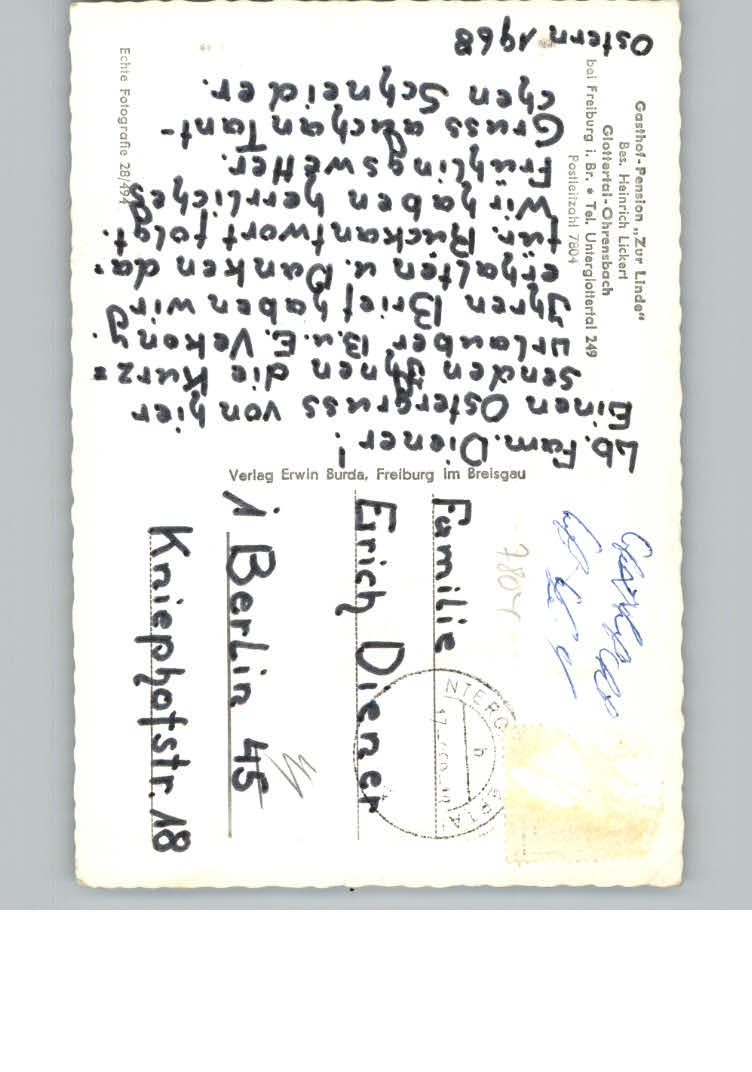 Gasthof-Pension „Zur Linde"
Bes. Heinrich Lickert
Glottertal-Ohrensbach
bei Freiburg i. Br. * Tel. Unterglottertal 249
Postleitzahl 7804
Lb. Fam. Diener!
Einen Ostergruss von hier
senden Ihnen die Kurz=
urlauber B.u.E. Vekony.
Ihren Brief haben wir
erhalten u Danken da-
für. Rückantwort folgt.
Wir haben herrliches
Frühlingswetter.
Gruss auch an Tant-
chen Schneider.
Ostern 1968
Echte Fotografie 28/494
Verlag Erwin Burda, Freiburg im Breisgau
7804
NTERG
b
Familie
Erich Diener
1 Berlin 45
Kniephofstr. 18